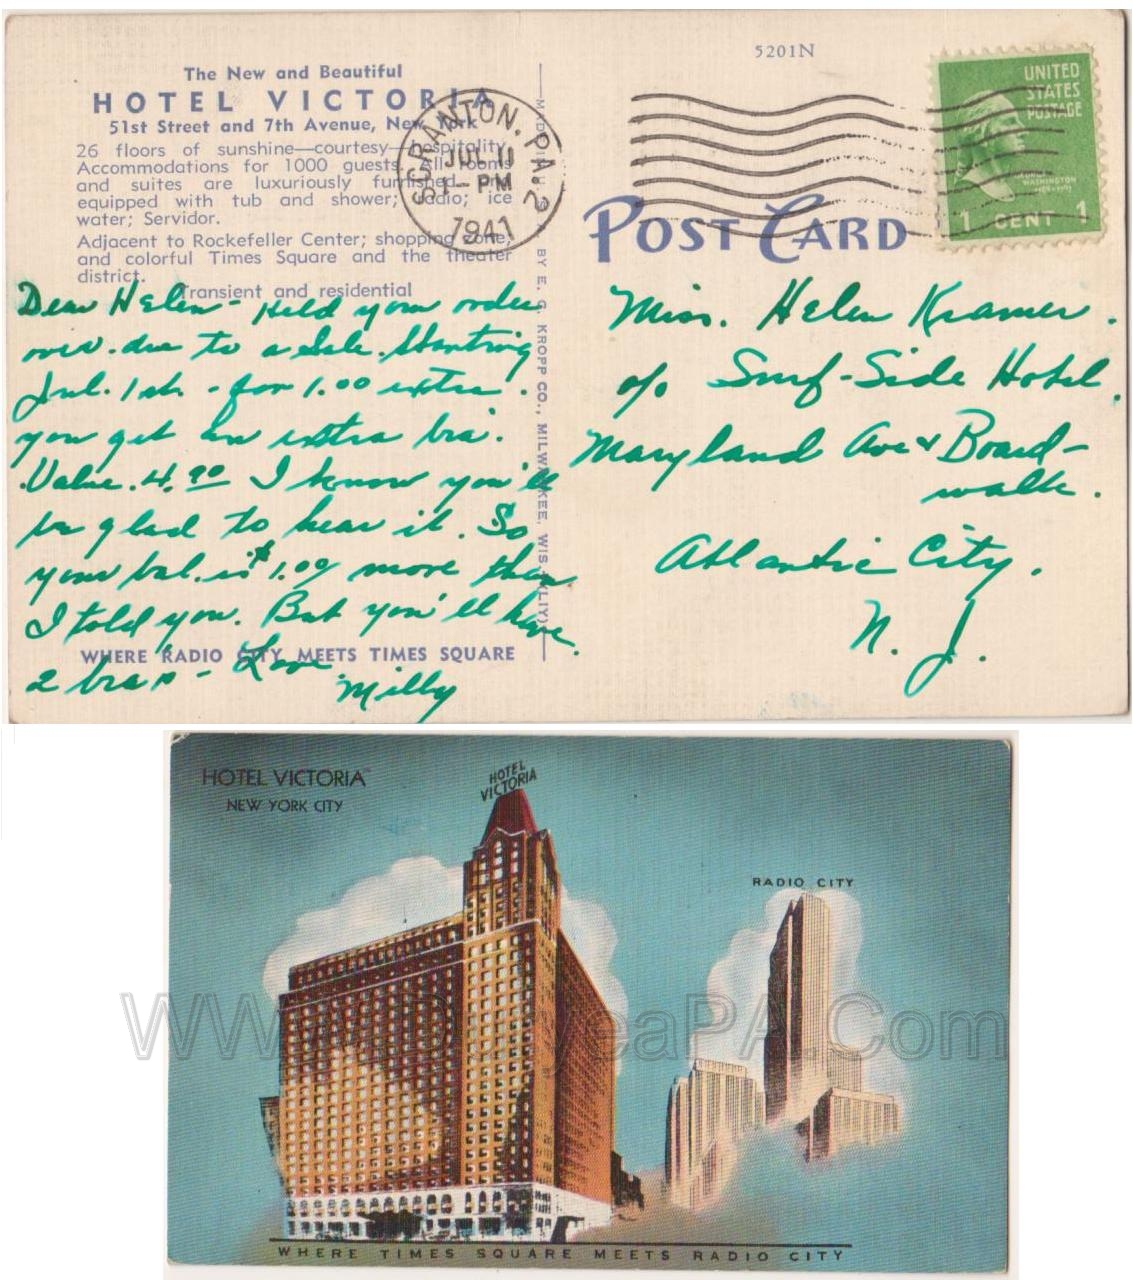 5201N
The New and Beautiful
HOTEL VICTORIA
51st Street and 7th Avenue, New York
26 floors of sunshine—courtesy—hospitality.
Accommodations for 1000 guests. All rooms
and suites are luxuriously furnished and
equipped with tub and shower; radio; ice
water; Servidor.
Adjacent to Rockefeller Center; shopping zone,
and colorful Times Square and the theater
district.
Transient and residential
WHERE RADIO CITY MEETS TIMES SQUARE
Dear Helen - Held your order
over. due to a Sale. Starting
Jul. 1st. - for 1.00 extra.
you get an extra bra.
Value. 4.90 I know you'll
be glad to hear it. So
your bal. is $1.00 more than
I told you. But you'll have
2 bras - Love.
Milly
SCRANTON, PA. 2
JUL 11
PM
1941
BY E. C. KROPP CO., MILWAUKEE, WIS.
UNITED
STATES
POSTAGE
GEORGE
WASHINGTON
1 CENT 1
POST CARD
Miss. Helen Kramer.
c/o Surf-Side Hotel.
Maryland Ave & Board-
walk.
Atlantic City.
N. J.
HOTEL VICTORIA
NEW YORK CITY
HOTEL
VICTORIA
RADIO CITY
WHERE TIMES SQUARE MEETS RADIO CITY